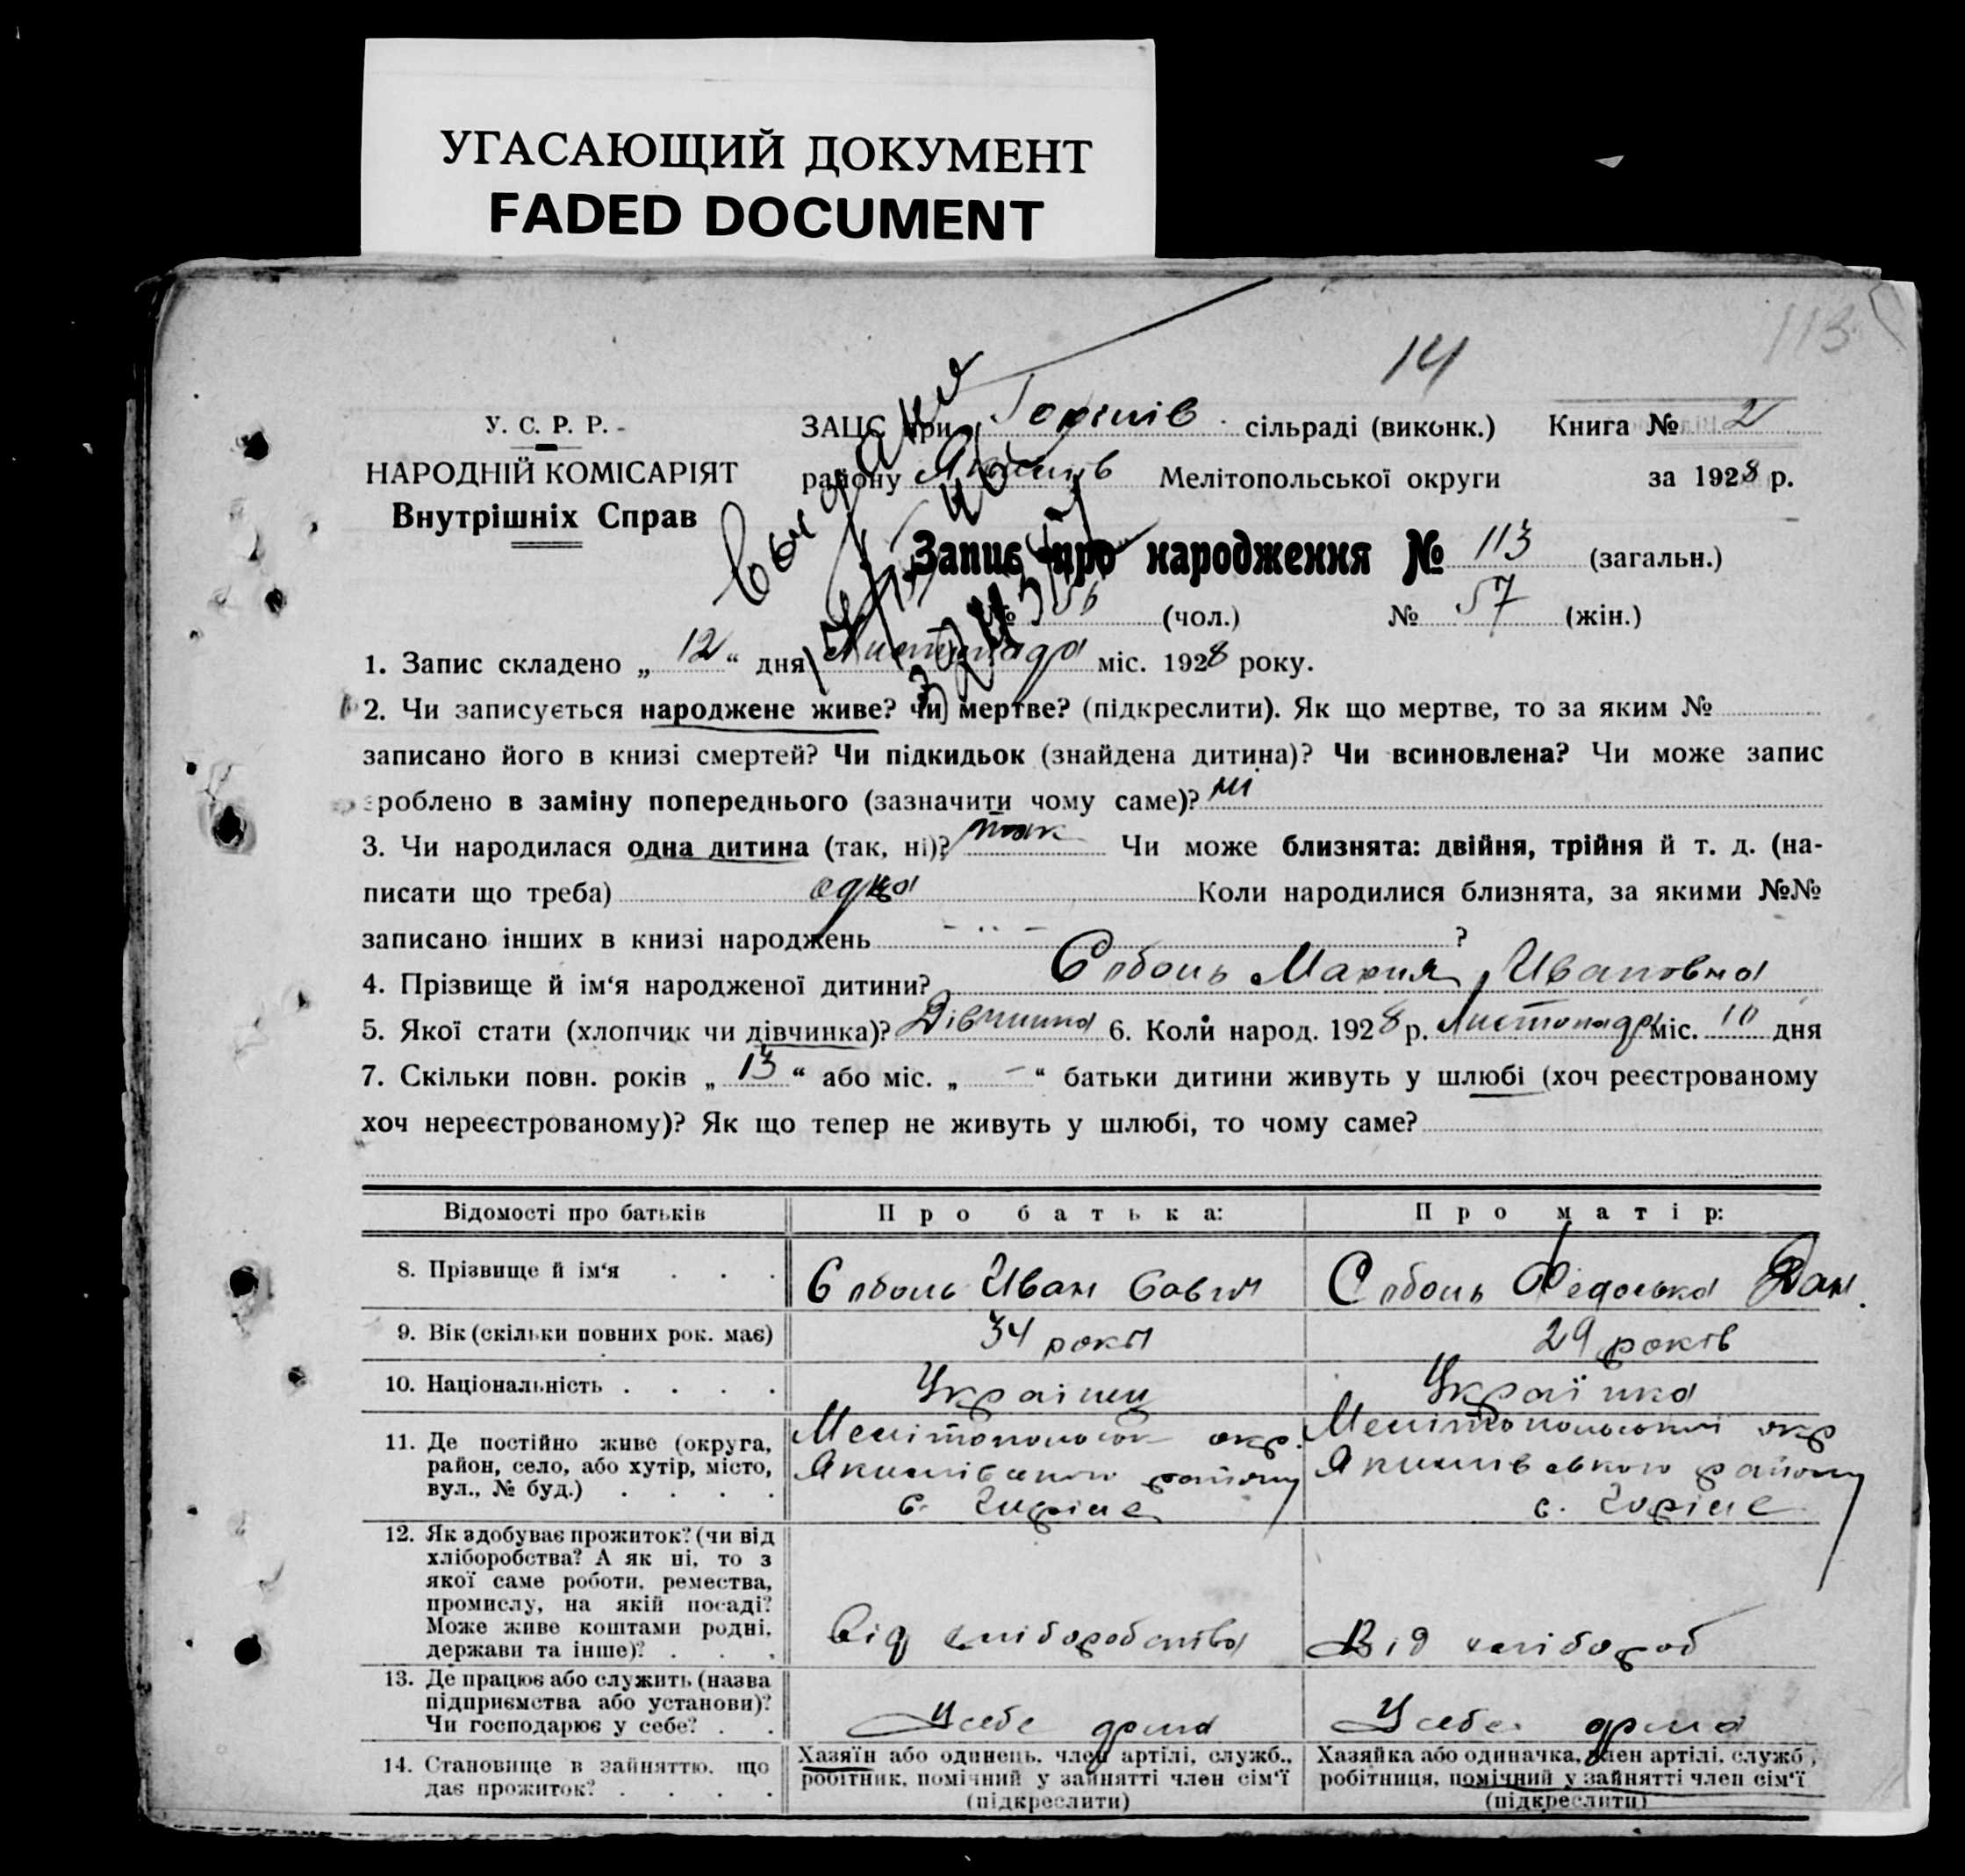 УГАСАЮЩИЙ ДОКУМЕНТ
FADED DOCUMENT
14
113
У. С. Р. Р.
НАРОДНІЙ КОМІСАРІЯТ
Внутрішніх Справ
ЗАЦС при сільраді (виконк.) Книга № 2
району Мелітопольської округи за 1928 р.
Запис про народження № 113 (загальн.)
№ 56 (чол.) № 57 (жін.)
1. Запис складено „ 12 “ дня Листопада міс. 1928 року.
2. Чи записується народжене живе? чи мертве? (підкреслити). Як що мертве, то за яким №
записано його в книзі смертей? Чи підкидьок (знайдена дитина)? Чи всиновлена? Чи може запис
зроблено в заміну попереднього (зазначити чому саме)? ні
3. Чи народилася одна дитина (так, ні)? так Чи може близнята: двійня, трійня й т. д. (на-
писати що треба) одна Коли народилися близнята, за якими №№
записано інших в книзі народжень ?
4. Прізвище й ім‘я народженої дитини? Соболь Мария Ивановна
5. Якої стати (хлопчик чи дівчинка)? Дівчинка 6. Коли народ. 1928 р. Листопада міс. 10 дня
7. Скільки повн. років „ 13 “ або міс. „ - “ батьки дитини живуть у шлюбі (хоч реєстрованому
хоч нереєстрованому)? Як що тепер не живуть у шлюбі, то чому саме?
Відомості про батьків Про батька: Про матір:
8. Прізвище й ім‘я . . . Соболь Иван Савич Соболь Федоська Дан.
9. Вік (скільки повних рок. має) 34 роки 29 років
10. Національність . . . . Українець Українка
11. Де постійно живе (округа, район, село, або хутір, місто, вул., № буд.) . . . . Мелітопольськ окр. Якимівського району с. Мелітопольської окр Якимівського району с.
12. Як здобуває прожиток? (чи від хліборобства? А як ні, то з якої саме роботи, ремества, промислу, на якій посаді? Може живе коштами родні, держави та інше)? . . . Від хліборобства Від хлібороб
13. Де працює або служить (назва підприємства або установи)? Чи господарює у себе? . . У себе дома У себе дома
14. Становище в зайняттю, що дає прожиток? . . . . Хазяїн або одинець, член артілі, служб., робітник, помічний у зайнятті член сім‘ї (підкреслити) Хазяйка або одиначка, член артілі, служб., робітниця, помічний у зайнятті член сім‘ї (підкреслити)